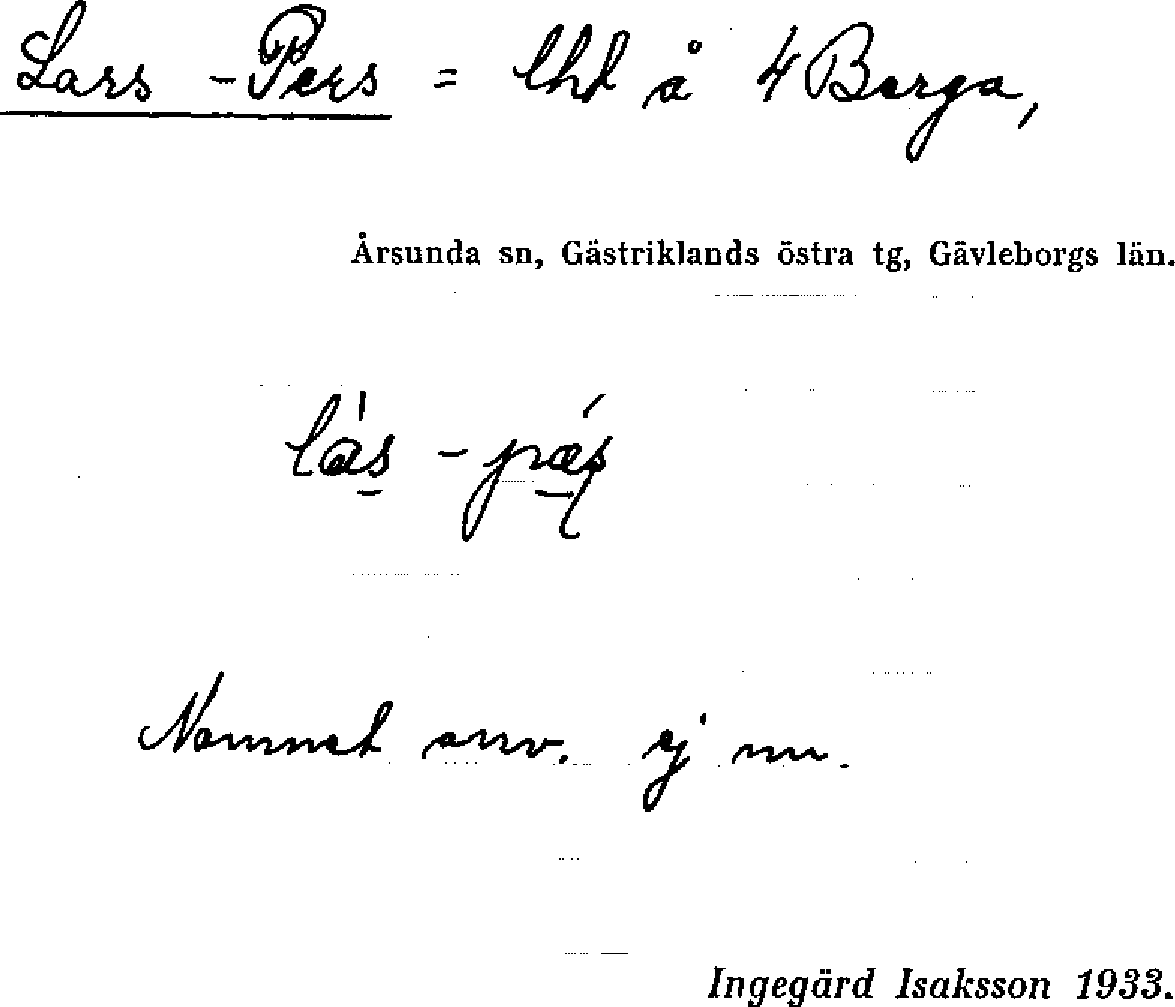 Lars-Pers = lht å 4 Berga,
Årsunda sn, Gästriklands östra tg, Gävleborgs län.
lás - pæ̀s
Namnet anv. ej nu.
Ingegärd Isaksson 1933.